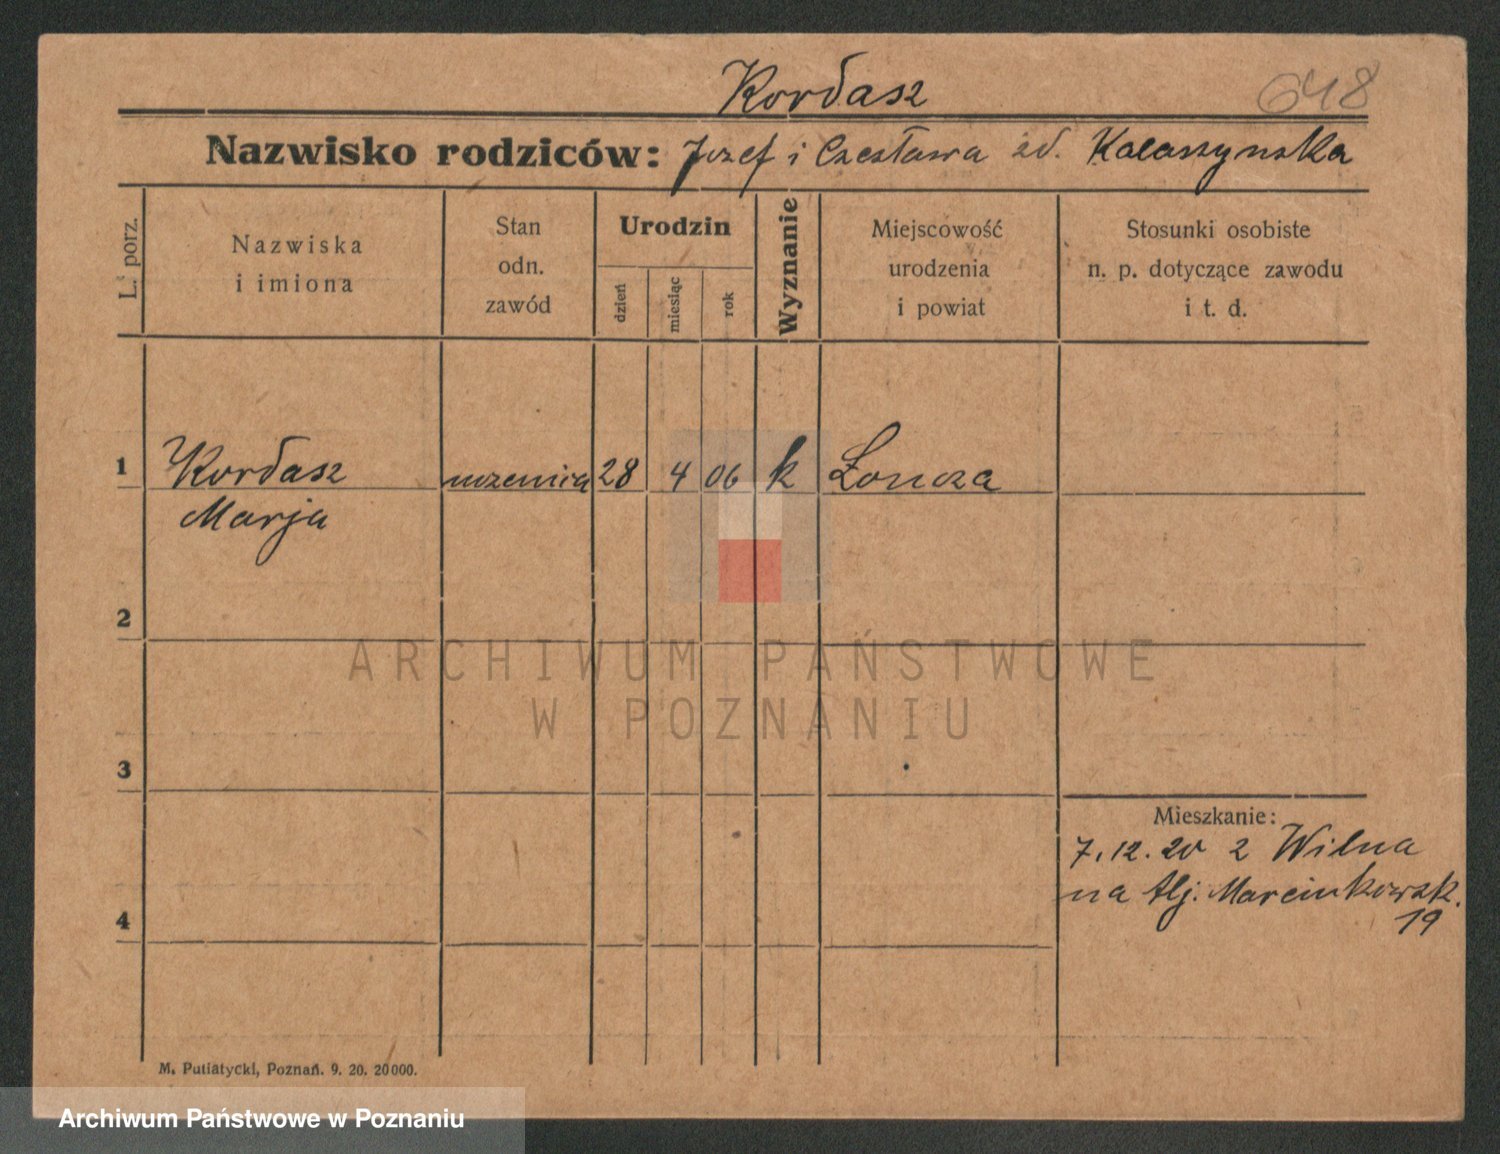 Kordasz
648
Nazwisko rodziców: Jozef i Czesława zd. Kałaszynska
L. porz.
Nazwiska
i imiona
Stan
odn.
zawód
Urodzin
dzień
miesiąc
rok
Wyznanie
Miejscowość
urodzenia
i powiat
Stosunki osobiste
n. p. dotyczące zawodu
i t. d.
1 Kordasz uczenica 28 4 06 k Łoncza
Marja
2
ARCHIWUM PAŃSTWOWE
W POZNANIU
3
Mieszkanie:
7.12.20 z Wilna
na Alj. Marcinkowsk.
19
4
M. Putiatycki, Poznań. 9. 20. 20000.
Archiwum Państwowe w Poznaniu